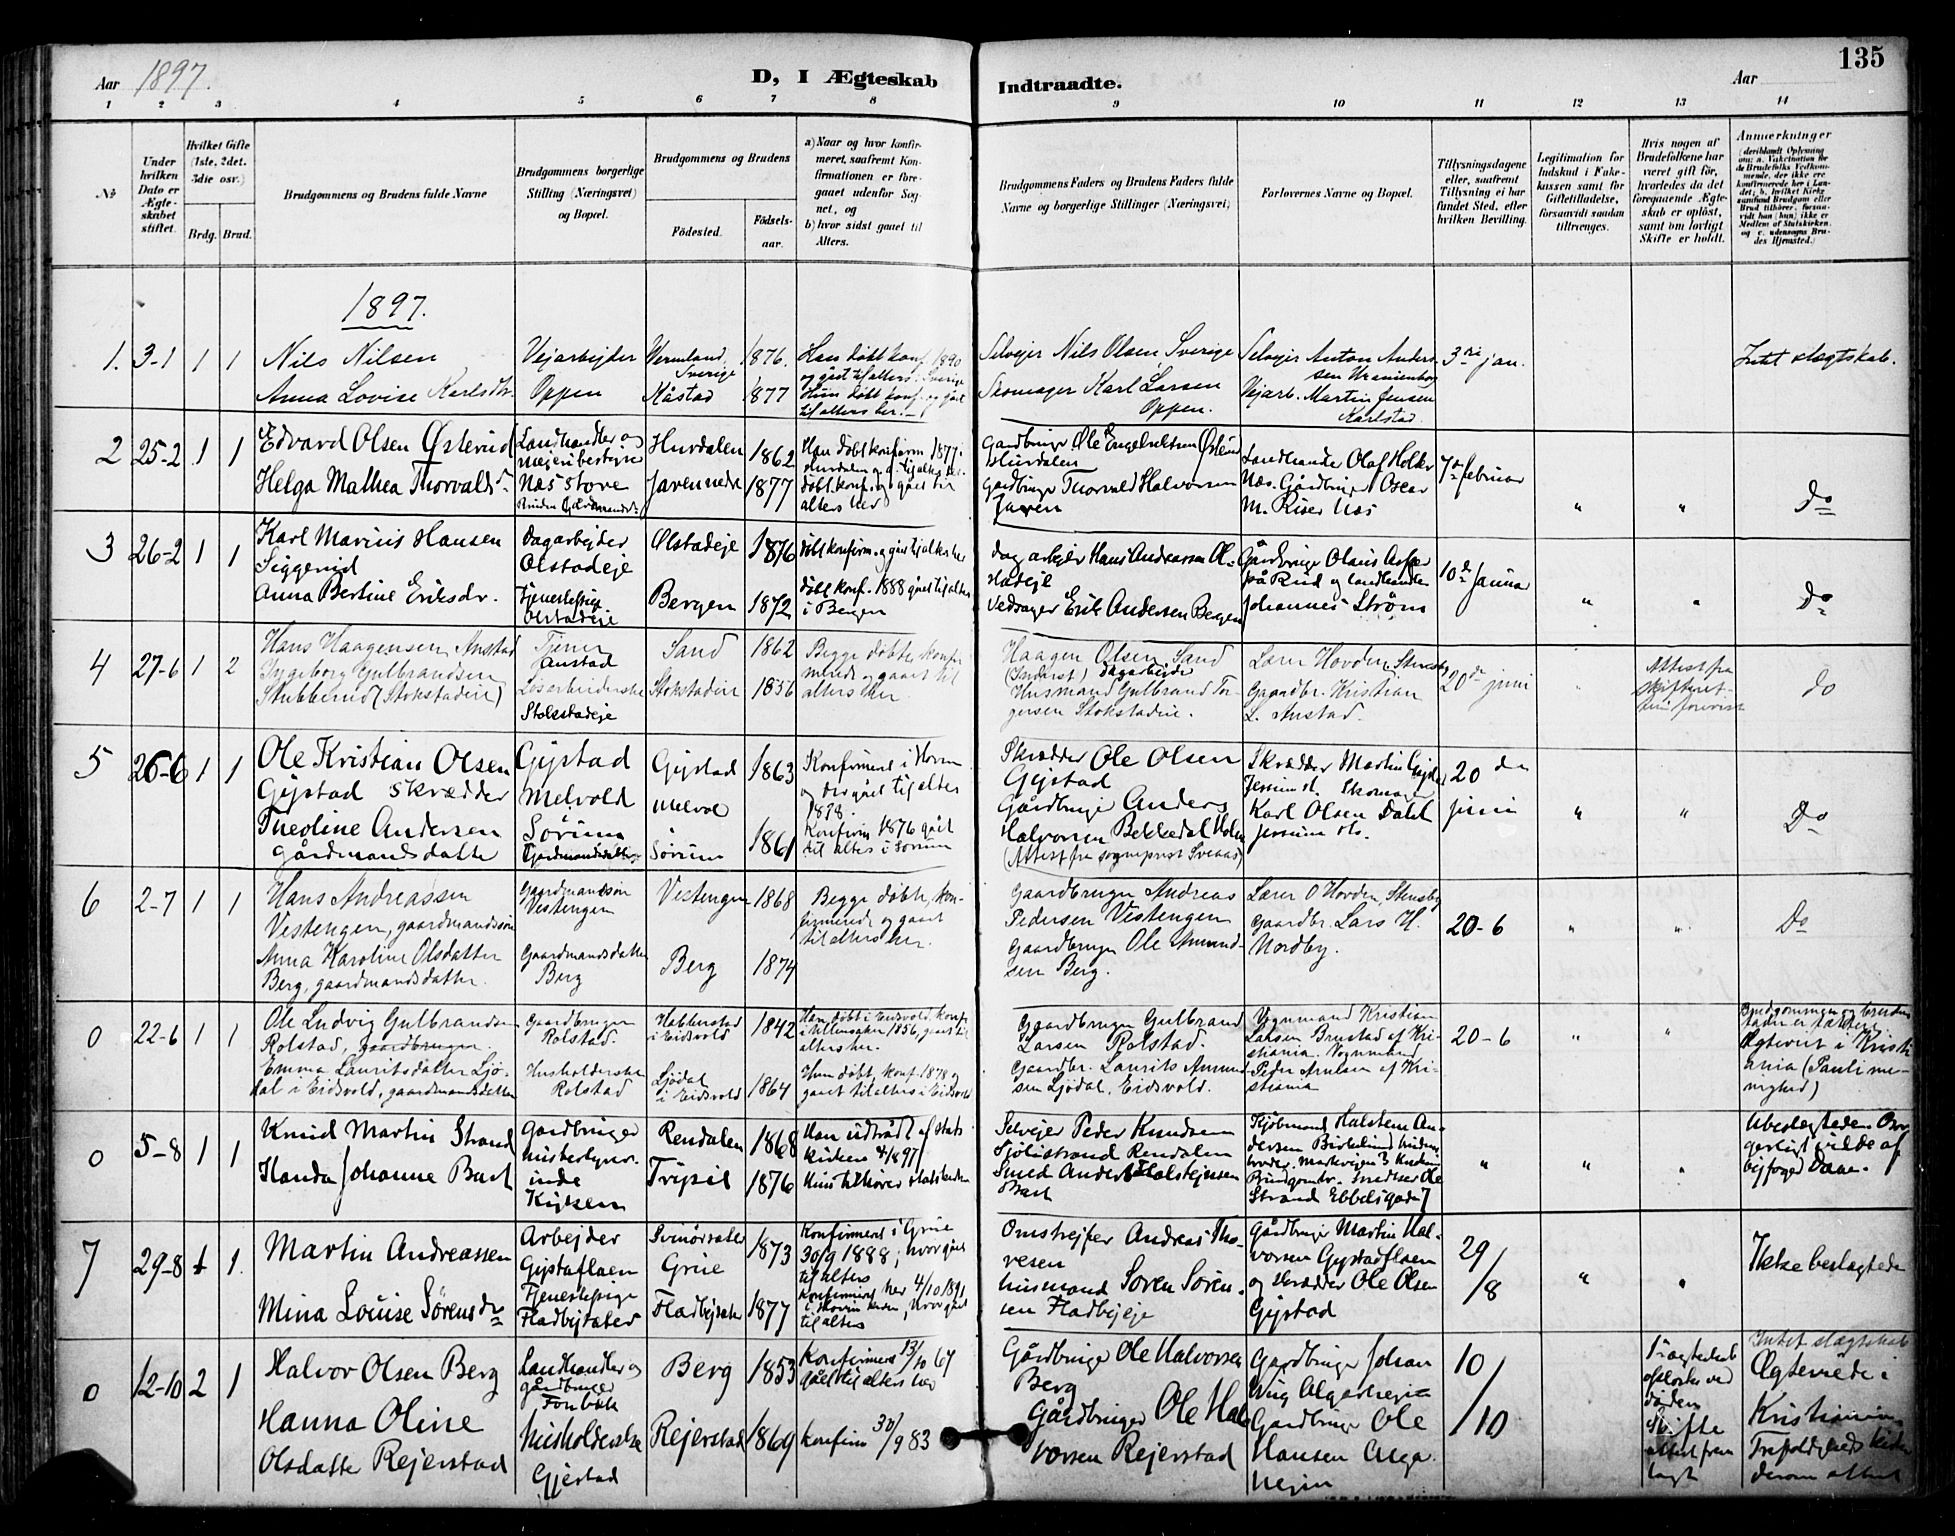 135
Aar 1897.
D, I Ægteskab
Indtraadte.
Aar
1 2 3 4 5 6 7 8 9 10 11 12 13 14
No
Under hvilken Dato er Ægteskabet stiftet.
Hvilket Gifte (1ste, 2det, 3die osv.)
Brdg. Brud.
Brudgommens og Brudens fulde Navne
Brudgommens borgerlige Stilling (Næringsvei) og Bopæl.
Brudgommens og Brudens
Fødested.
Fødselsaar.
a) Naar og hvor konfirmeret, saafremt Konfirmationen er foregaaet udenfor Sognet, og
b) hvor sidst gaaet til Alters.
Brudgommens Faders og Brudens Faders fulde Navne og borgerlige Stillinger (Næringsvei)
Forlovernes Navne og Bopæl.
Tillysningsdagene eller, saafremt Tillysning ei har fundet Sted, efter hvilken Bevilling.
Legitimation for Indskud i Enkekassen samt for Giftetilladelse, forsaavidt saadan tiltrænges.
Hvis nogen af Brudefolkene har været gift før, hvorledes da det foregaaende Ægteskab er opløst, samt om lovligt Skifte er holdt.
Anmærkninger
1897.
1. 3-1 1 1
Nils Nilsen
Anna Lovise Karlsdtr.
Vejarbejder
Oppen
Vermland, Sverige
Kåstad
1876.
1877
Han døbt konf. 1890 og gået til alters i Sverige
Hun døbt konf. og gået til alters her.
Selvejer Nils Olsen, Sverige
Skomager Karl Larsen
Oppen.
Selvejer Anton Andersen Uranienborg
Vejarb. Martin Jensen
Karlstad
3die jan.
Intet slægtskab.
2 25-2 1 1
Edvard Olsen Østerud
Helga Mathea Thorvaldsd.
Landhandler og
mejeribestyrer
Næs store
Hurdalen
Javennede
1862
1877
Han døbt konfirm 1877 i Hurdalen
døbt konf. og gået til alters her
Gardbruger Ole Engebretsen
Hurdalen
Gardbruger Thorvald Halvorsen
Javen
Landhandler Olaf Holter
Næs. Gårdbruger Oscar
M. Riser Næs
7de februar
" "
Do
3 26-2 1 1
Karl Marius Hansen
Siggerud
Anna Bertine Eriksdr.
Dagarbejder
Olstadeje
Tjenestepige
Olstadeje
Ølstadeje
Bergen
1876
1872
døbt konfirm. og gået til alters her
døbt konf. 1888 gået til alters
i Bergen
Dagarbejder Hans Andreassen Ølstadeje
Vedsager Erik Andersen Bergen
Gårdbruger Olaus
på Rud og landhandler
Johannes Strøm
10de Januar
" "
Do
4 27-6 1 2
Hans Haagensen, Anstad
Ingeborg Gulbrandsen
Stubberud (Stokstadeie)
Tjener
Anstad
Løsarbeiderske
Stokstadeje
Sand
Stokstadeie
1862
1856
Begge døbte, konfirmerede og gaaet til
alters her.
Haagen Olsen, Sand
dagarbeider
Husmand Gulbrand Torgersen Stokstadeie.
Lærer Hovden, Stensby
Gaardbr. Kristian
L. Anstad.
20de juni
Attest fra
skifteretten forevist
do
5 26-6 1 1
Ole Kristian Olsen
Gystad Skrædder
Theoline Andersen
gårdmandsdatter
Gystad
Melvold
Sørum
Gardmandsdatter
Gystad
Melvol
Sørum
1863
1861
Konfirmeret i Hovin
og der gået til alters
1878.
Konfirm. 1876 gået
til alters i Sørum
Skrædder Ole Olsen
Gystad
Gårdbruger Anders
Halvorsen Bekkedal Holm
(Attest fra sognepræst Sveaas)
Skrædder Martin
Jessum st. Skomager
Karl Olsen Dahl
Jessum st.
20de
juni
" "
Do
6 2-7 1 1
Hans Andreassen
Vestengen, gaardmandssøn
Anna Karoline Olsdatter
Berg, gaardmandsdatter.
Gaardmandssøn
Vestengen
Gaardmandsdatter
Berg
Vestengen
Berg
1868
1874
Begge døbte, konfirmerede og gaaet
til alters her.
Gaardbruger Andreas
Pedersen Vestengen
Gaardbruger Ole Amundsen Berg.
Lærer O Hovden, Stensby
Gaardbr. Lars H.
Nordby.
20-6
" "
Do
0 22-6 1 1
Ole Ludvig Gulbrandsen
Rolstad, gaardbruger.
Emma Lauritsdatter Ljødal i Eidsvold, gaardmandsdatter
Gaardbruger
Rolstad.
Husholderske
Rolstad
Habberstad
i Eidsvold
Ljødal
i Eidsvold
1842
1864
Han døbt i Eidsvold, konf.
i Ullensaker 1856, gaaet til
alters her.
Hun døbt, konf. 1878 og
gaaet til alters i Eidsvold
Gaardbruger Gulbrand
Larsen Rolstad.
Gaardbr. Laurits Amundsen Ljødal, Eidsvold.
Vognmand Kristian
Larsen Brustad af Kristiania. Vognmand
Peder Paulsen af Kristiania
20-6
" "
Ægteviet i Kristiania (Pauli menighed)
0 5-8 1 1
Knud Martin Strand
Handa Johanne Bast
Gardbruger
husbestyrerinde
Rendalen
Trysil
1868
1876
Han udtrådt af statskirken
Hun tilhører statskirken
Selvejer Peder Knudsen
Sjølistrand Rendalen
Smed Anders Halstejnsen
Bast
Kjøbmand Halsten Andersen Birkelund
Strand Ebbelsgade 7
" " "
Ubeslægtede. Borgerligt viede af
byfoged Daae.
7 29-8 1 1.
Martin Andreassen
Mina Louise Sørensdr
Arbejder
Gystaflaen
Tjenestepige
Fladbysæter
Grue
Fladbysæter
1873
1877
Konfirmeret i Grue
30/9 1888, hvor gået
til alters
Konfirmeret her 4/10 1891
i Hovin kirken, hvor gået
til alters
Omstrejfer Andreas Thovesen
husmand Søren Sørensen Fladbyeje
Gårdbruger Martin Halvorsen Gystadflaen
og skrædder Ole Olsen
Gystad
29/8
" "
Ikke beslægtede
0 12-10 2 1
Halvor Olsen Berg
Hanna Oline
Olsdatter Rejerstad
Landhandler og
gårdbruger
Husholderske
Gjestad
Berg
Rejerstad
1853
1869
Konfirmeret 13/10 67
gået til alters her
konfirm 30/9 83
Gårdbruger Ole Halvorsen
Berg
Gårdbruger Ole Halvorsen Rejerstad
Gardbruger Johan
Gardbruger Ole
Hansen Alga
hejm
10/10
1ste ægteskab
opløst ved
døden
Skifte
attest frem
lagt
Intet slægtskab
Ægteviede i
Kristiania
Trefoldigheds kirke